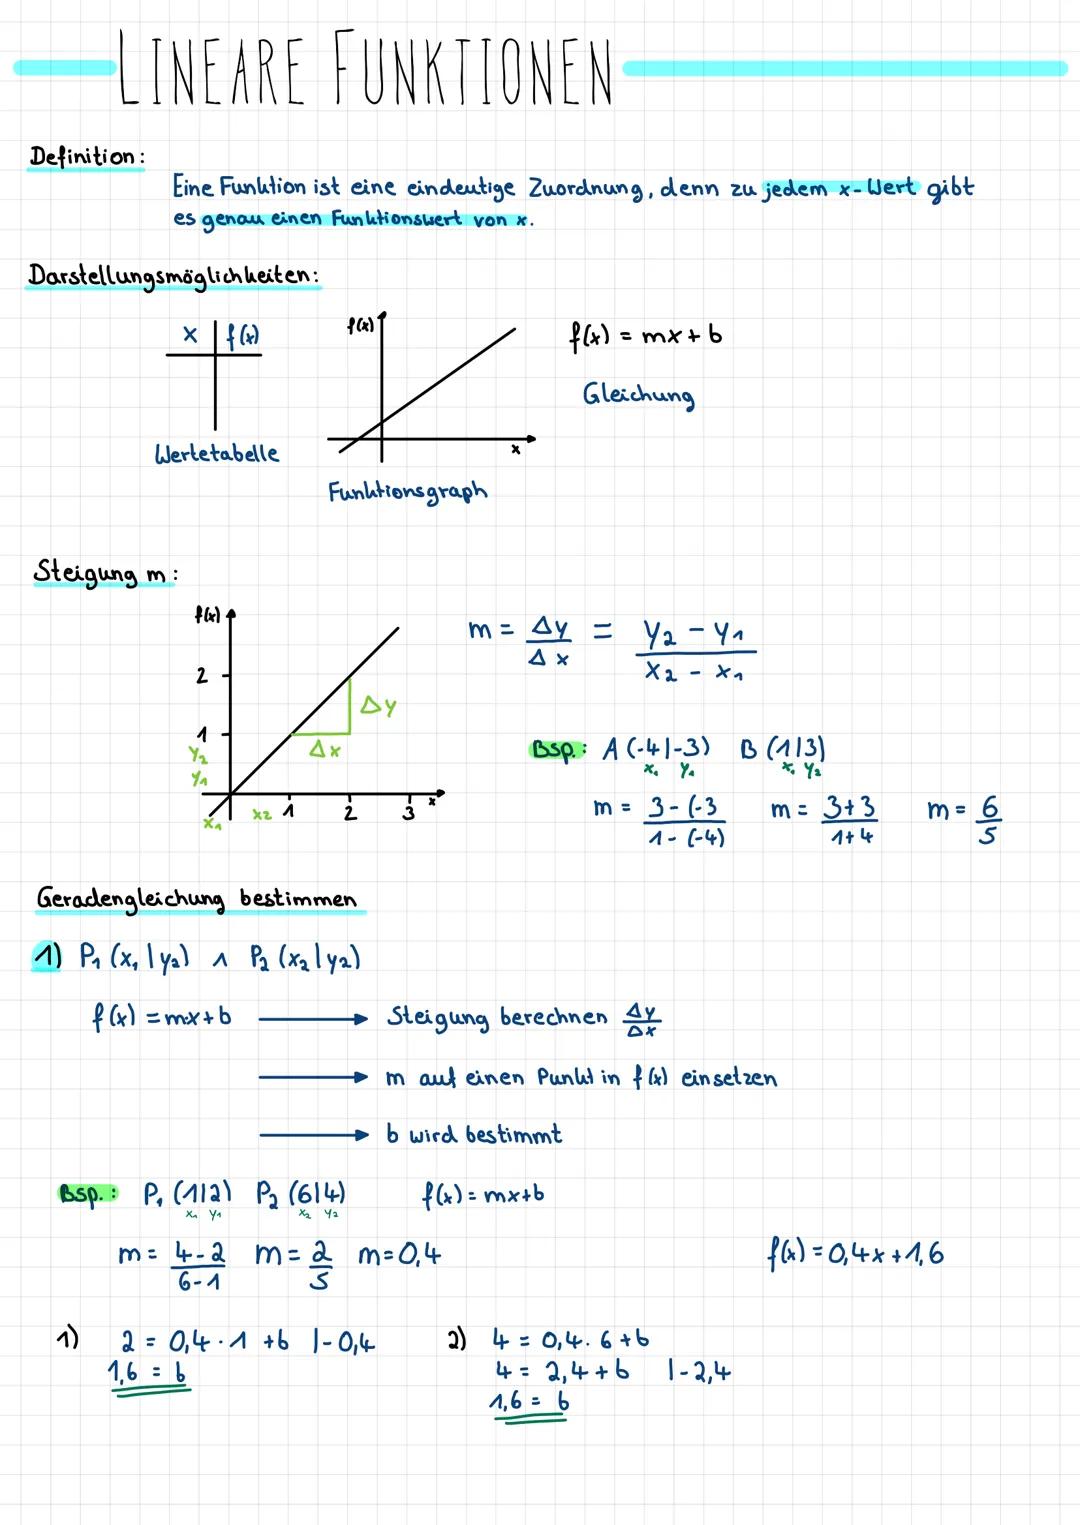 LINEARE FUNKTIONEN
Definition:
Eine Funktion ist eine eindeutige Zuordnung, denn zu jedem x-Wert gibt
es genau einen Funktionswert von x.
Darstellungsmöglichkeiten:
x | f(x)
Wertetabelle
f(x)
x
Funktionsgraph
f(x) = mx + b
Gleichung
Steigung m:
f(x)
2
1
y₂
y₁
x₁ x₂ 1 2 3 x
Δx
Δy
m = Δy/Δx = (y₂ - y₁)/(x₂ - x₁)
Bsp.: A (-4|-3) B (1|3)
x₁ y₁ x₁ y₂
m = (3 - (-3)/(1 - (-4)) m = (3+3)/(1+4) m = 6/5
Geradengleichung bestimmen
1) P₁ (x₁|y₂) ∧ P₂ (x₂|y₂)
f(x) = mx+b → Steigung berechnen Δy/Δx
→ m auf einen Punkt in f(x) einsetzen
→ b wird bestimmt
Bsp.: P₁ (1|2) P₂ (6|4) f(x) = mx+b
x₁ y₁ x₂ y₂
m = (4-2)/(6-1) m = 2/5 m = 0,4 f(x) = 0,4x + 1,6
1) 2 = 0,4 · 1 + b |-0,4
1,6 = b
2) 4 = 0,4 · 6 + b
4 = 2,4 + b |-2,4
1,6 = b